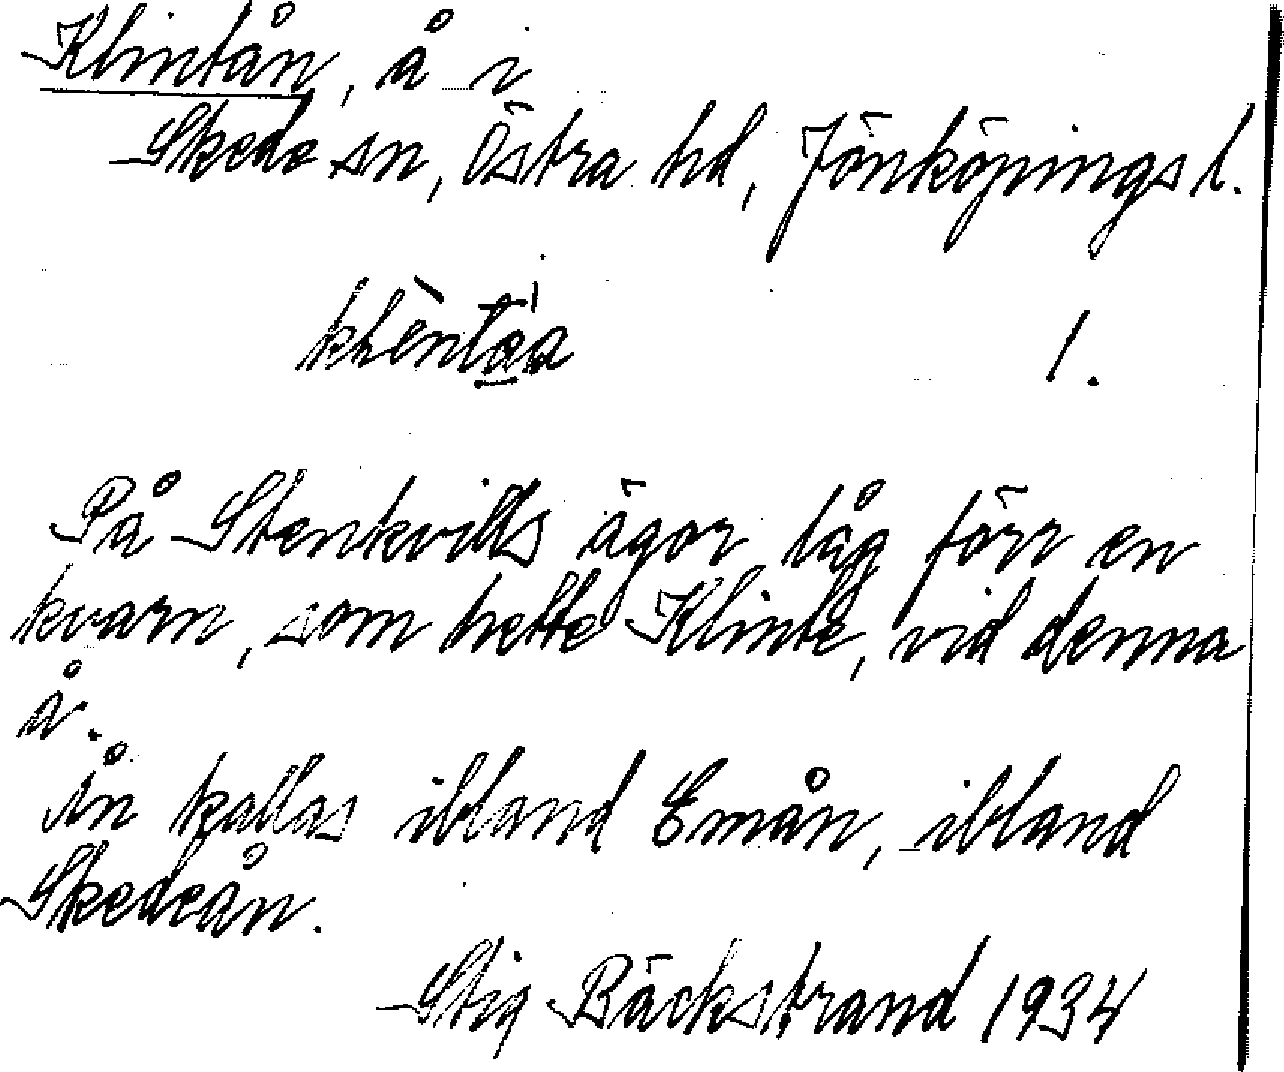 Klintån, å i
Skede sn, Östra hd, Jönköpings l.
1.
På Stenkvills ägor låg förr en
kvarn, som hette Klinte, vid denna
å.
Ån kallas ibland Emån, ibland
Skedeån.
Stig Bäckstrand 1934